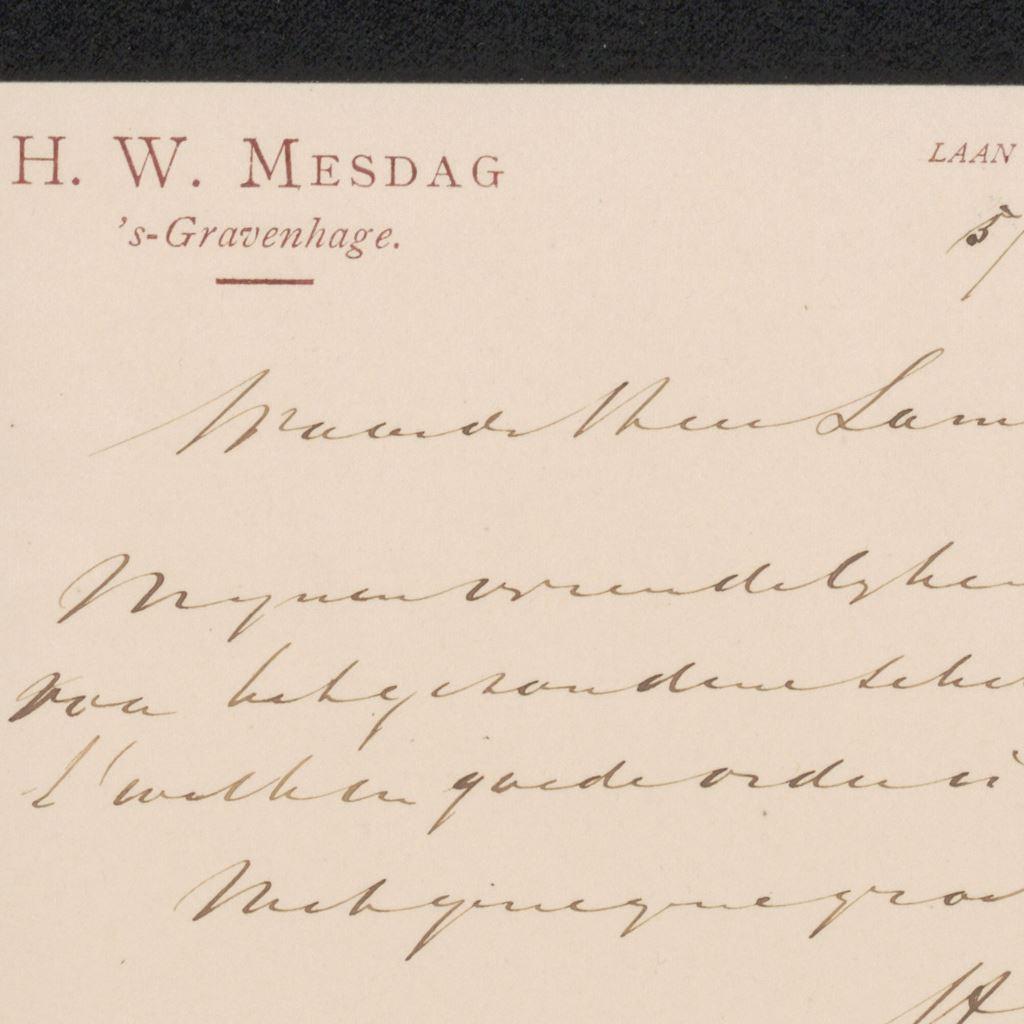 H. W. MESDAG
LAAN
's-Gravenhage.
5/
Waarde Heer Lam
Mijnen vriendelijken
voor het gezondene sche
t'welk in goede orde i
Met genegene groe
H